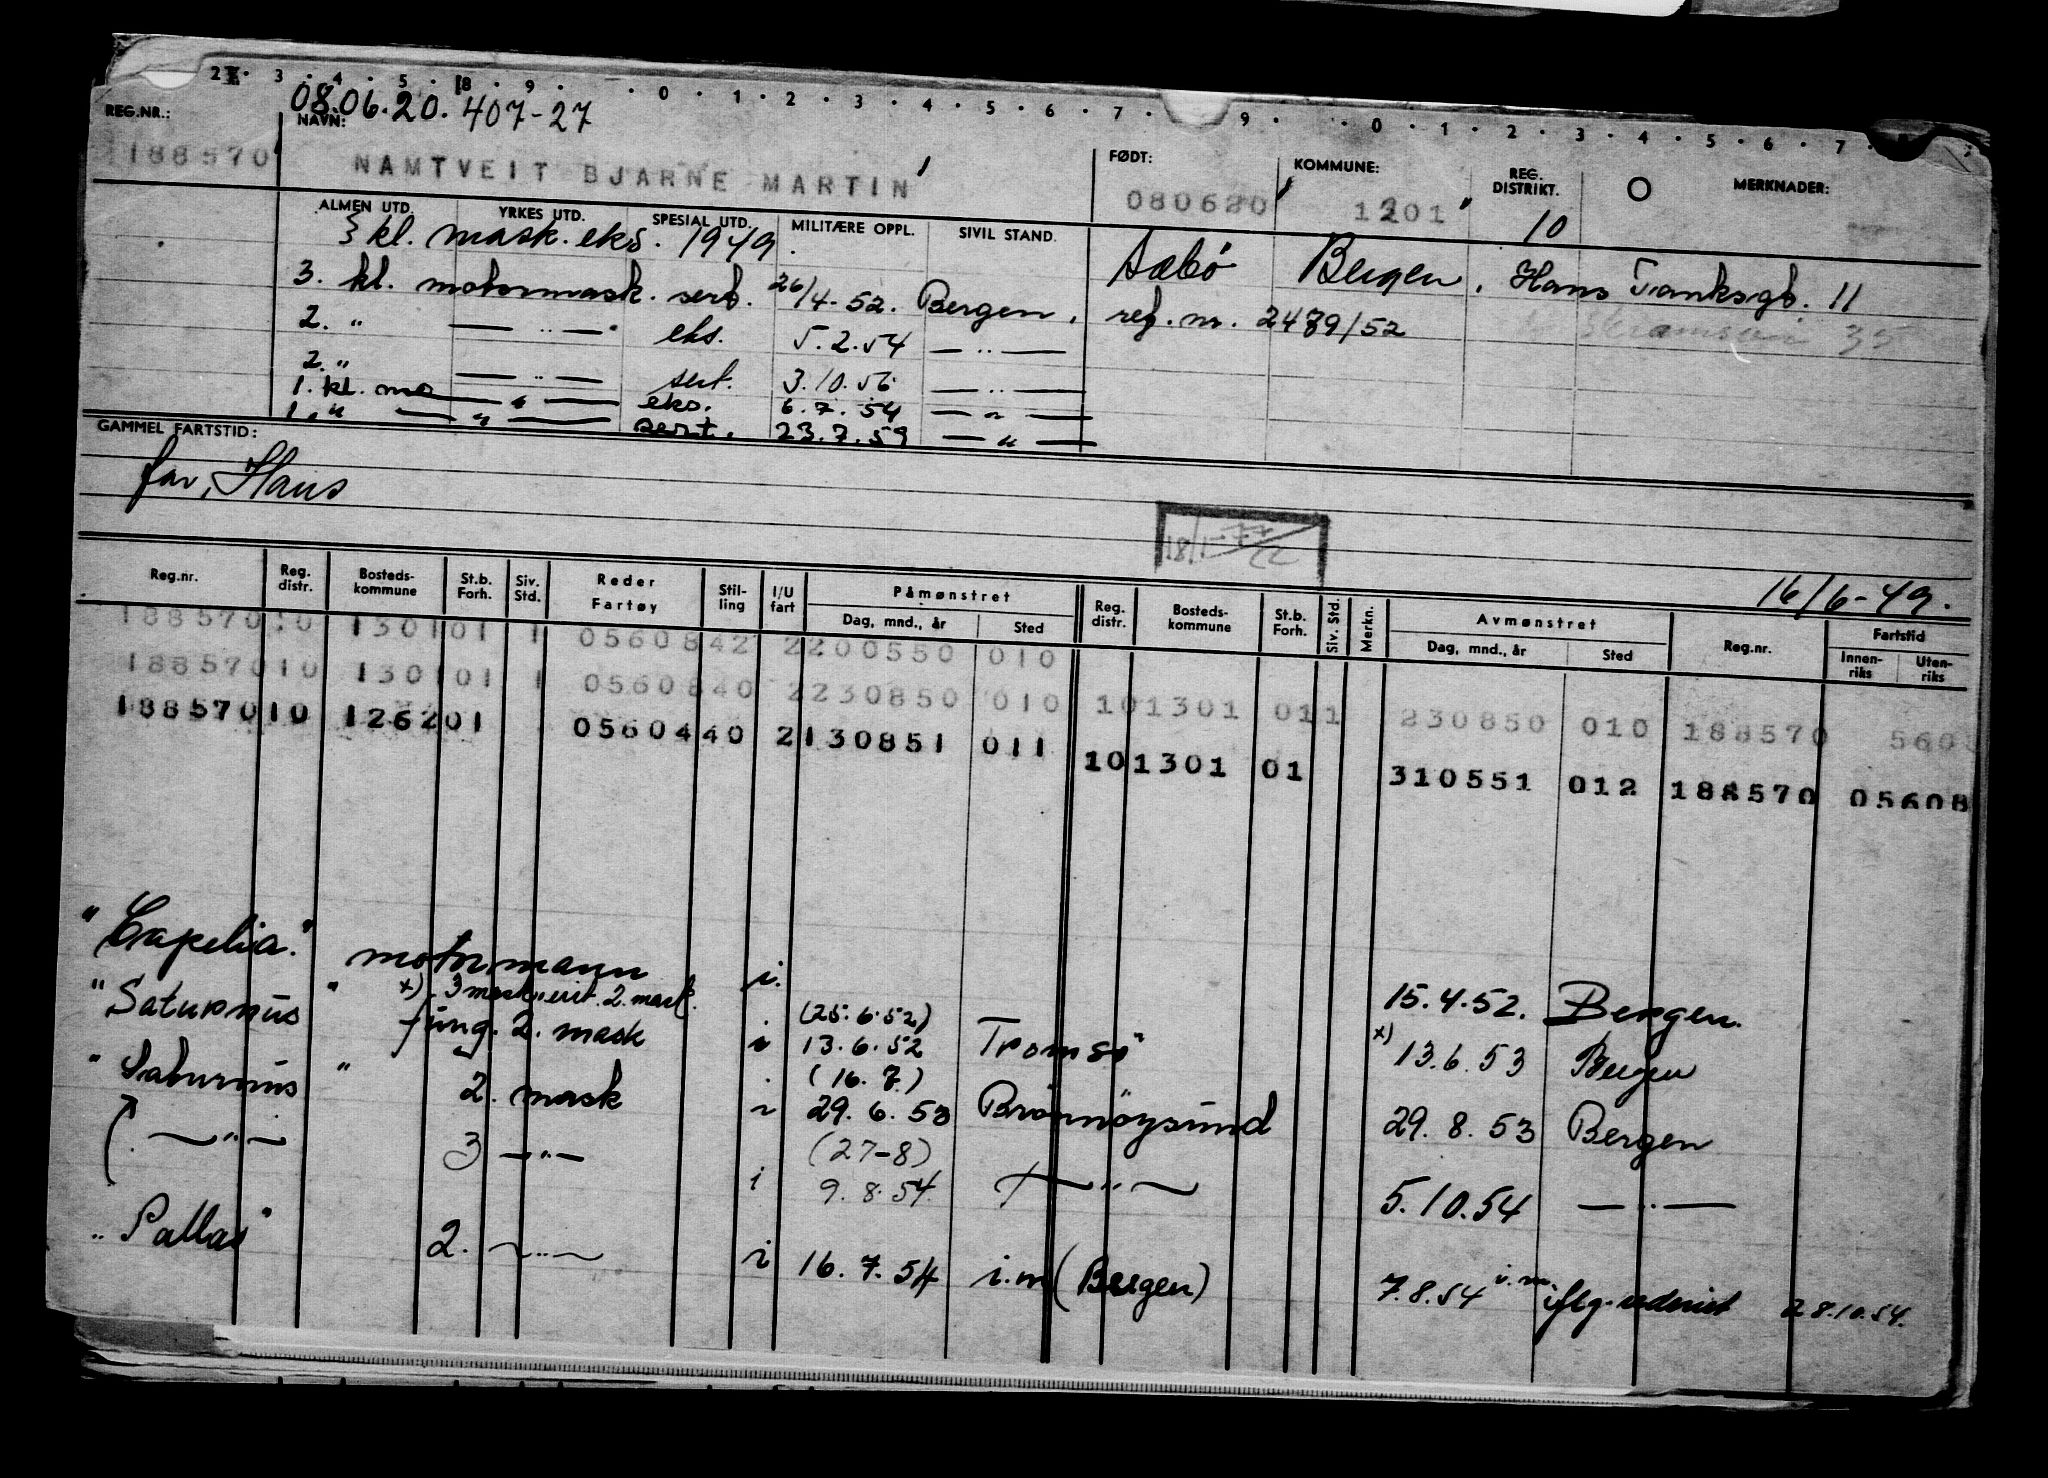 2 . 3 . 4 . 5 . 8 . 9 . . 0 . 1 . 2 . 3 . 4 . 5 . 6 . 7 . 9 . . 0 . 1 . 2 . 3 . 4 . 5 . 6 . 7
08.06.20. 407-27
REG.NR.: NAVN: FØDT: KOMMUNE: REG. DISTRIKT. O MERKNADER:
188570 NAMTVEIT BJARNE MARTIN 080620 1201 10
ALMEN UTD. YRKES UTD. SPESIAL UTD. MILITÆRE OPPL. SIVIL STAND.
3 kl. mask. eks. 1949. Sæbö Bergen, Hans Tanksgt. 11
3. kl. motormask. sert. 26/4-52. Bergen, reg. nr. 2489/52 35
2. " — " — eks. 5.2.54 — " —
2. " — " — sert. 3.10.56 — " —
1. kl. mo — " — eks. 6.7.54 — " —
1. " — " — sert. 23.7.59 — " —
GAMMEL FARTSTID:
far, Hans
18/1-77
16/6-49.
Reg.nr. Reg. distr. Bosteds-kommune St.b. Forh. Siv. Std. Reder Fartøy Stil-ling I/U fart Påmønstret Dag, mnd., år Sted Reg. distr. Bosteds-kommune St.b. Forh. Siv. Std. Merkn. Avmønstret Dag, mnd., år Sted Reg.nr. Fartstid Innen-riks Uten-riks
188570 10 1301 01 1 05608 42 2 200550 010
188570 10 1301 01 1 05608 40 2 230850 010 10 1301 01 1 230850 010 188570 560
188570 10 1262 01 05604 40 2 130851 011 10 1301 01 310551 012 188570 05608
"Capelia." motormann i. 15.4.52. Bergen.
x) 3 mask. 2. mask. (25.6.52)
"Saturnus" fung. 2. mask i 13.6.52 Tromsö x) 13.6.53 Bergen
(16.7)
"Saturnus" 2. mask i 29.6.53 Brönnöysund 29.8.53 Bergen
(27-8)
— " — 3 — " — i 9.8.54 — " — 5.10.54 — " —
"Pallas" 2. — " — i 16.7.54 i.m (Bergen) 7.8.54 i.m iflg. rederiet 28.10.54.